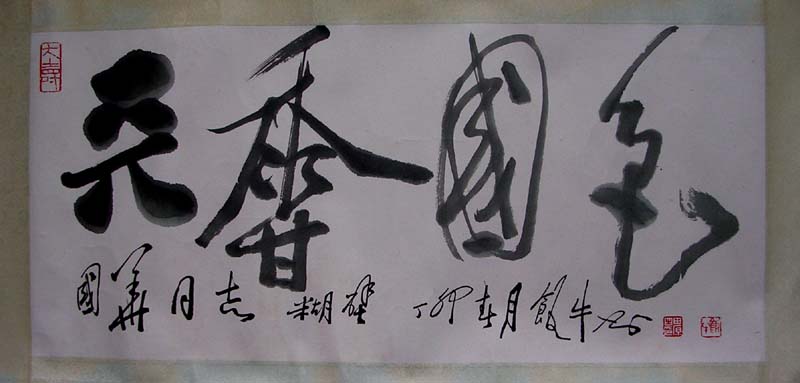 天香國色
國華同志 糊壁 丁卯春月 飯牛